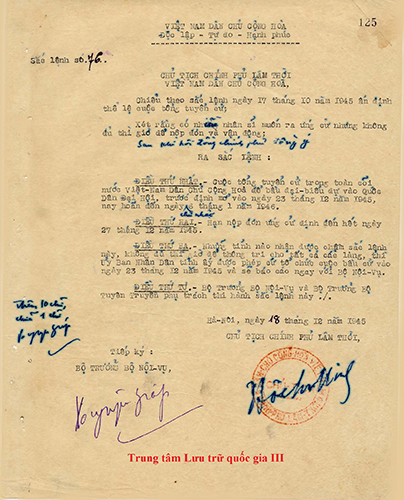 125
VIỆT NAM DÂN CHỦ CỘNG HOÀ
Độc lập - Tự do - Hạnh phúc
Sắc lệnh số 76.
CHỦ TỊCH CHÍNH PHỦ LÂM THỜI
VIỆT NAM DÂN CHỦ CỘNG HOÀ,
Chiếu theo sắc lệnh ngày 17 tháng 10 năm 1945 ấn định
thể lệ cuộc tổng tuyển cử;
Xét rằng có nhiều nhân sĩ muốn ra ứng cử nhưng không
đủ thì giờ để nộp đơn và vận động;
Sau khi hội đồng chính phủ đồng ý
RA SẮC LỆNH :
ĐIỀU THỨ NHẤT.- Cuộc tổng tuyển cử trong toàn cõi
nước Việt-Nam Dân Chủ Cộng Hoà để bầu đại-biểu dự vào Quốc
Dân Đại Hội, trước định mở vào ngày 23 tháng 12 năm 1945,
nay hoãn đến ngày tháng 1 năm 1946.
chủ nhật
ĐIỀU THỨ HAI.- Hạn nộp đơn ứng cử định đến hết ngày
27 tháng 12 năm 1945.
ĐIỀU THỨ BA.- Những tỉnh nào nhận được chậm sắc lệnh
này, không đủ thì giờ để thông tri cho tất cả các làng, thì
Uỷ Ban Nhân Dân tỉnh ấy được phép cứ tổ chức cuộc bầu cử vào
ngày 23 tháng 12 năm 1945 và sẽ báo cáo ngay với Bộ Nội-Vụ.
ĐIỀU THỨ TƯ.- Bộ Trưởng Bộ Nội-Vụ và Bộ Trưởng Bộ
Tuyên Truyền phụ trách thi hành sắc lệnh này ./.
Hà-Nội, ngày 18 tháng 12 năm 1945
CHỦ TỊCH CHÍNH PHỦ LÂM THỜI,
Tiếp ký :
BỘ TRƯỞNG BỘ NỘI-VỤ,
Trung tâm Lưu trữ quốc gia III